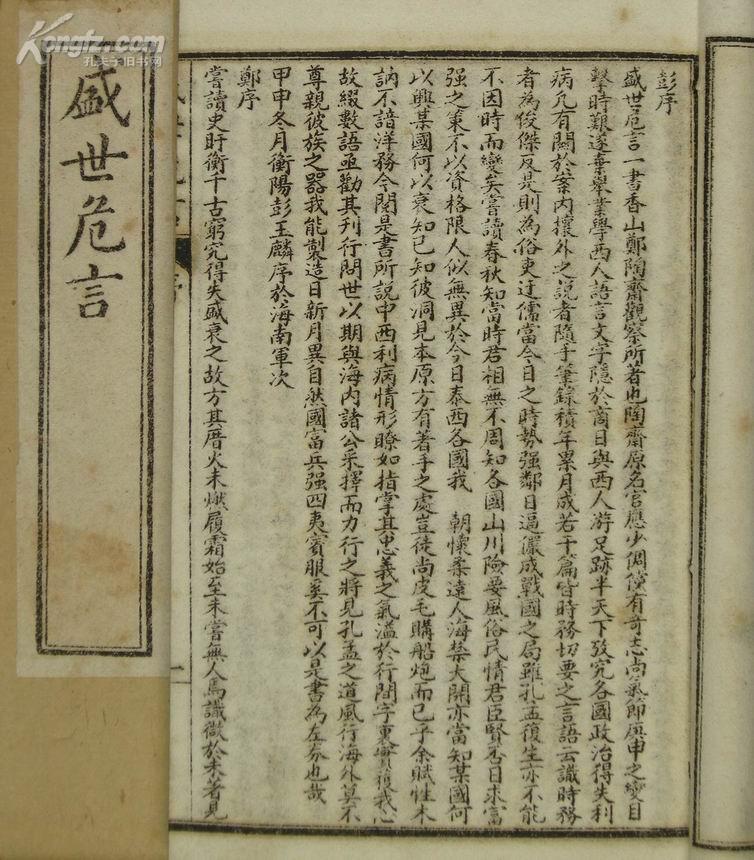 Kongfz.com
孔夫子旧书网
盛世危言
彭序
盛世危言一書香山鄭陶齋觀察所著也陶齋原名官應少倜儻有奇志尚氣節庚申之變目
擊時艱遂棄舉業學西人語言文字隱於商日與西人游足跡半天下攷究各國政治得失利
病凡有關於安內攘外之說者隨手筆錄積年累月成若干篇皆時務切要之言語云識時務
者為俊傑反是則為俗吏迂儒當今日之時勢强鄰日逼儼成戰國之局雖孔孟復生亦不能
不因時而變矣嘗讀春秋知當時君相無不周知各國山川險要風俗民情君臣賢否日求富
强之策不以資格限人似無異於今日泰西各國我 朝懷柔遠人海禁大開亦當知某國何
以興某國何以衰知己知彼洞見本原方有著手之處豈徒尚皮毛購船炮而已乎余賦性木
訥不諳洋務今閱是書所說中西利病情形瞭如指掌其忠義之氣溢於行間字裏實獲我心
故綴數語亟勸其刊行問世以期與海內諸公采擇而力行之將見孔孟之道風行海外莫不
尊親彼族之器我能製造日新月異自然國富兵强四夷賓服奚不可以是書為左券也哉
甲申冬月衡陽彭玉麟序於海南軍次
鄭序
嘗讀史盱衡千古窮究得失盛衰之故方其厝火未燃履霜始至未嘗無人焉識微於未著見